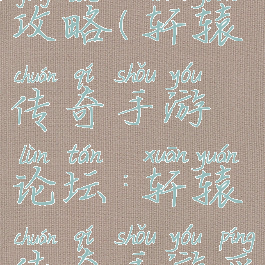 攻略(轩辕
chuán qí shǒu yóu
传奇手游
lùn tán xuān yuán
论坛:轩辕
chuán qí shǒu yóu píng